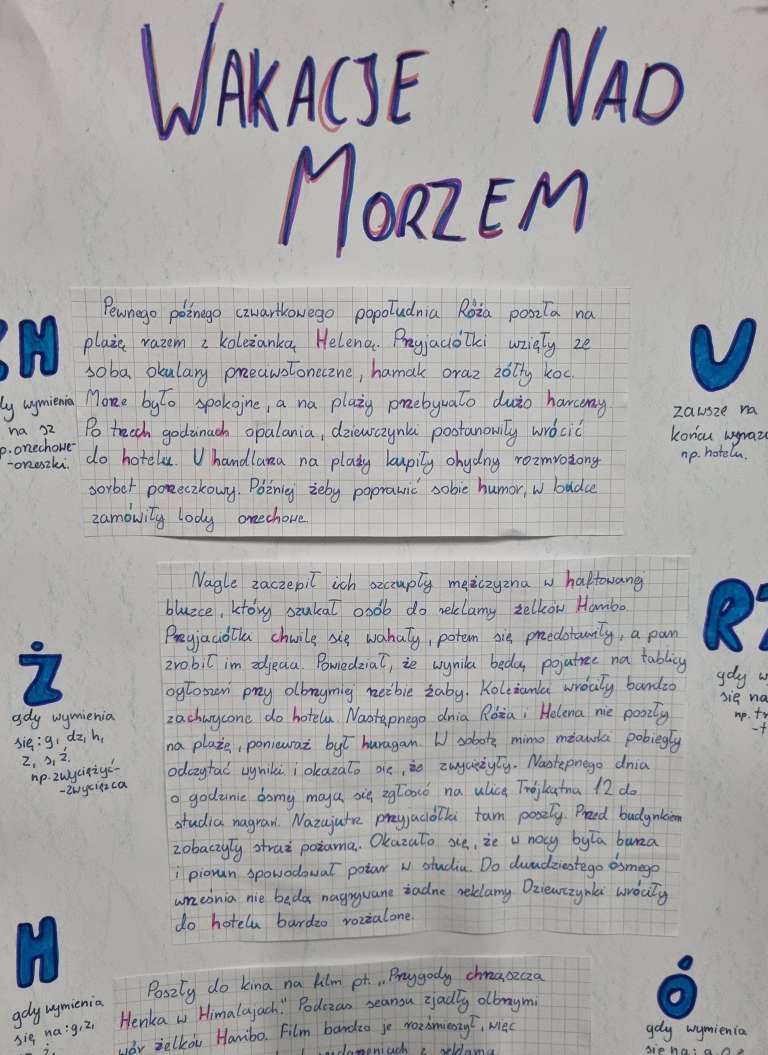 WAKACJE NAD
MORZEM
Pewnego późnego czwartkowego popołudnia Róża poszła na
plażę razem z koleżanką Heleną. Przyjaciółki wzięły ze
sobą okulary przeciwsłoneczne, hamak oraz żółty koc.
Morze było spokojne, a na plaży przebywało dużo harcerzy.
Po trzech godzinach opalania, dziewczynki postanowiły wrócić
do hotelu. U handlarza na plaży kupiły ohydny rozmrożony
sorbet porzeczkowy. Później żeby poprawić sobie humor, w budce
zamówiły lody orzechowe.
H
wymienia
na sz
np. orzechowe-
-orzeszki.
U
zawsze na
końcu wyrazu
np. hotelu.
Nagle zaczepił ich szczupły mężczyzna w haftowanej
bluzce, który szukał osób do reklamy żelków Haribo.
Przyjaciółki chwilę się wahały, potem się przedstawiły, a pan
zrobił im zdjęcia. Powiedział, że wyniki będą pojutrze na tablicy
ogłoszeń przy olbrzymiej rzeźbie żaby. Koleżanki wróciły bardzo
zachwycone do hotelu. Następnego dnia Róża i Helena nie poszły
na plażę, ponieważ był huragan. W sobotę mimo mżawki pobiegły
odczytać wyniki i okazało się, że zwyciężyły. Następnego dnia
o godzinie ósmej mają się zgłosić na ulicę Trójkątna 12 do
studia nagrań. Nazajutrz przyjaciółki tam poszły. Przed budynkiem
zobaczyły straż pożarną. Okazało się, że w nocy była burza
i piorun spowodował pożar w studiu. Do dwudziestego ósmego
września nie będą nagrywane żadne reklamy. Dziewczynki wróciły
do hotelu bardzo rozżalone.
Ż
gdy wymienia
się: g, dz, h,
z, s, ź,
np. zwyciężyć-
-zwycięzca
RZ
gdy
się na
np.
H
gdy wymienia
się na: g, z,
Poszły do kina na film pt. „Przygody chrząszcza
Henka w Himalajach". Podczas seansu zjadły olbrzymi
wór żelków Haribo. Film bardzo je rozśmieszył, więc
z reklamą
Ó
gdy wymienia
się na: